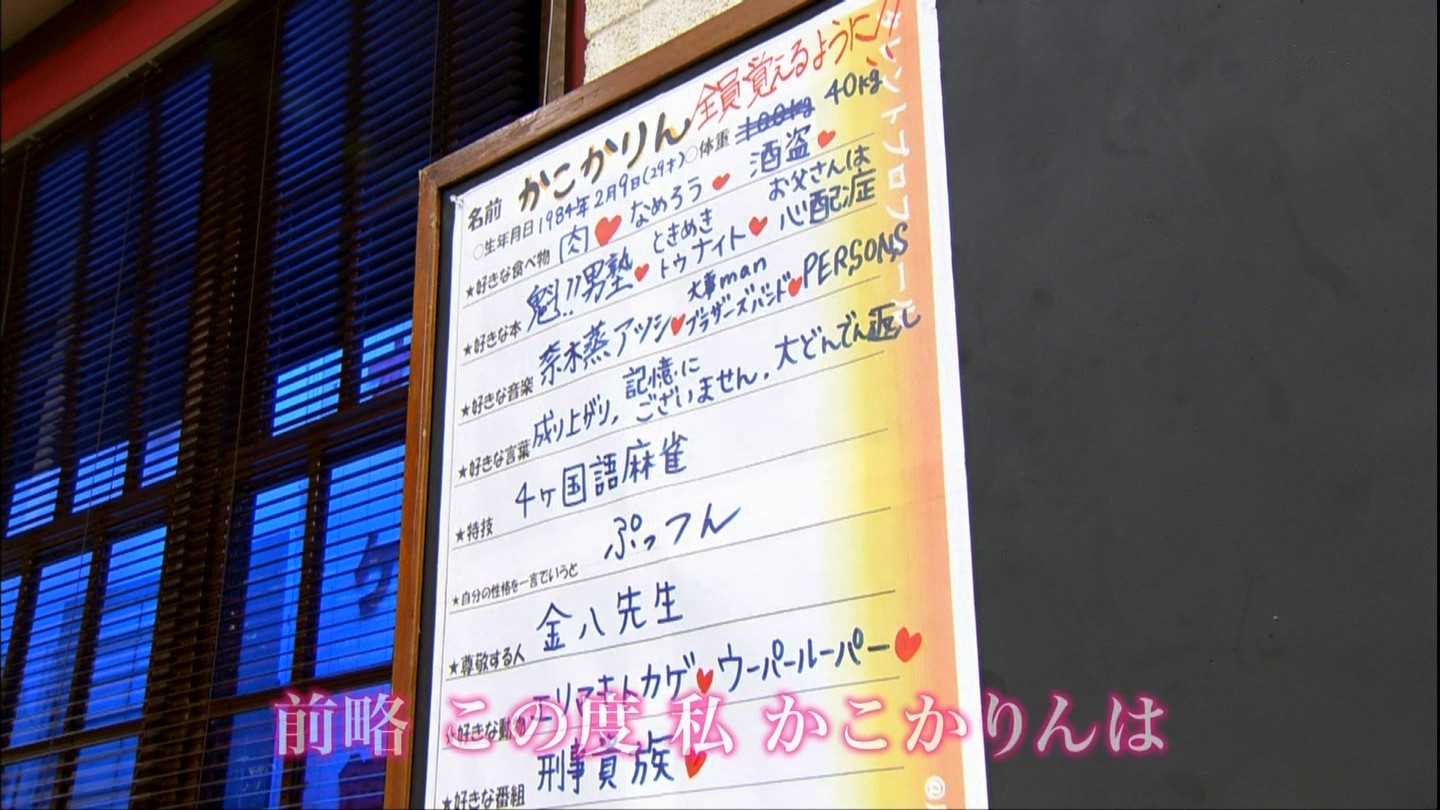 全員覚えるように!!
名前 かこかりん
○生年月日 1984年2月9日(29才) ○体重 100kg 40kg
★好きな食べ物 肉♥ なめろう♥ 酒盗♥
★好きな本 魁!!男塾♥ ときめきトゥナイト♥ お父さんは心配症
★好きな音楽 奈木蒸アツシ♥大事manブラザーズバンド♥PERSONS
★好きな言葉 成り上がり, 記憶にございません. 大どんでん返し
★特技 4ヶ国語麻雀
★自分の性格を一言でいうと ぷっつん
★尊敬する人 金八先生
☆好きな動物 エリマキトカゲ♥ウーパールーパー♥
★好きな番組 刑事貴族♥
前略 この度 私 かこかりんは